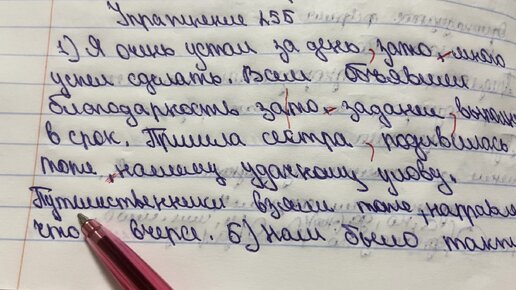 Упражнение 235
1) Я очень устал за день, зато много
успел сделать. Всем объявили
благодарность за то задание, выполн
в срок. Пришла сестра, подивилась
тоже нашему удачному улову.
Путешественники взяли то же направле
что вчера. Б) Нам было